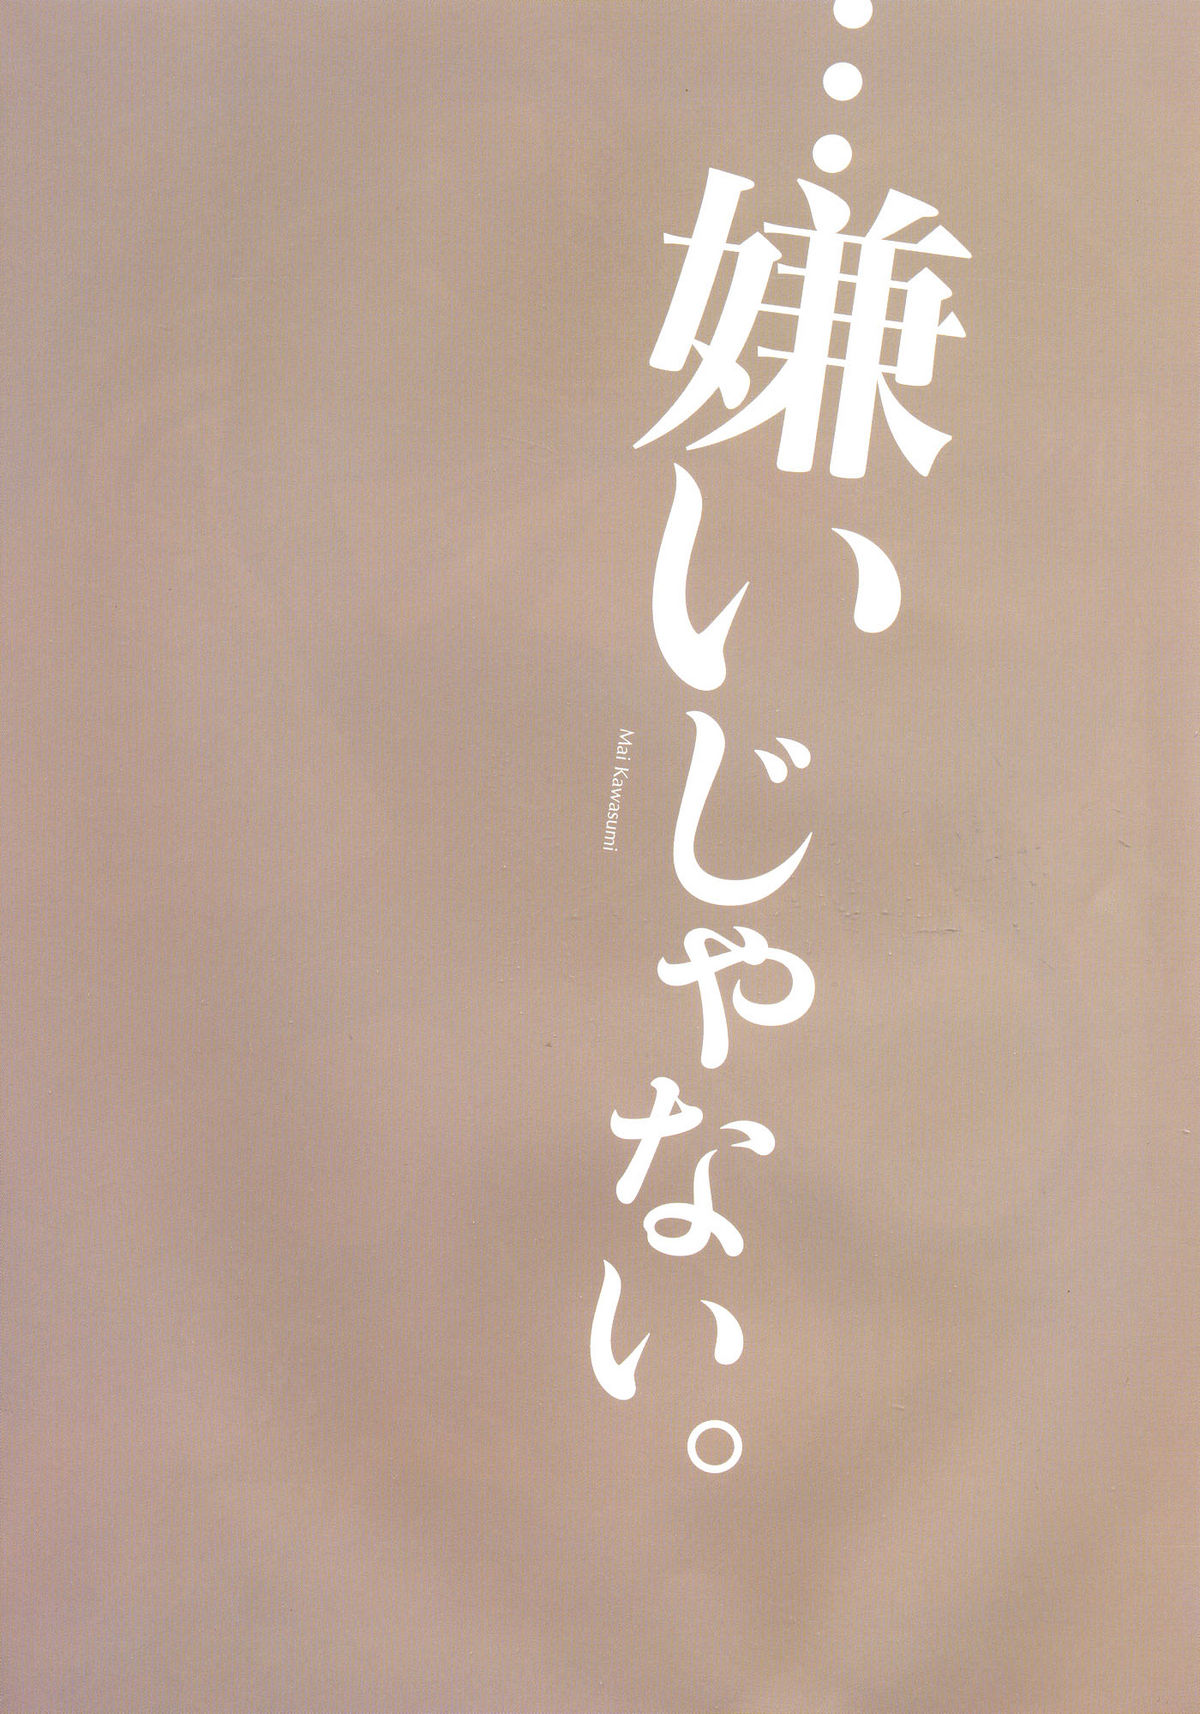 …嫌いじゃない。
Mai Kawasumi